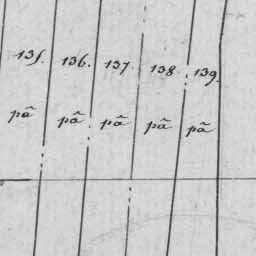 135. 136. 137 138 139.
pã pã pã pã pã